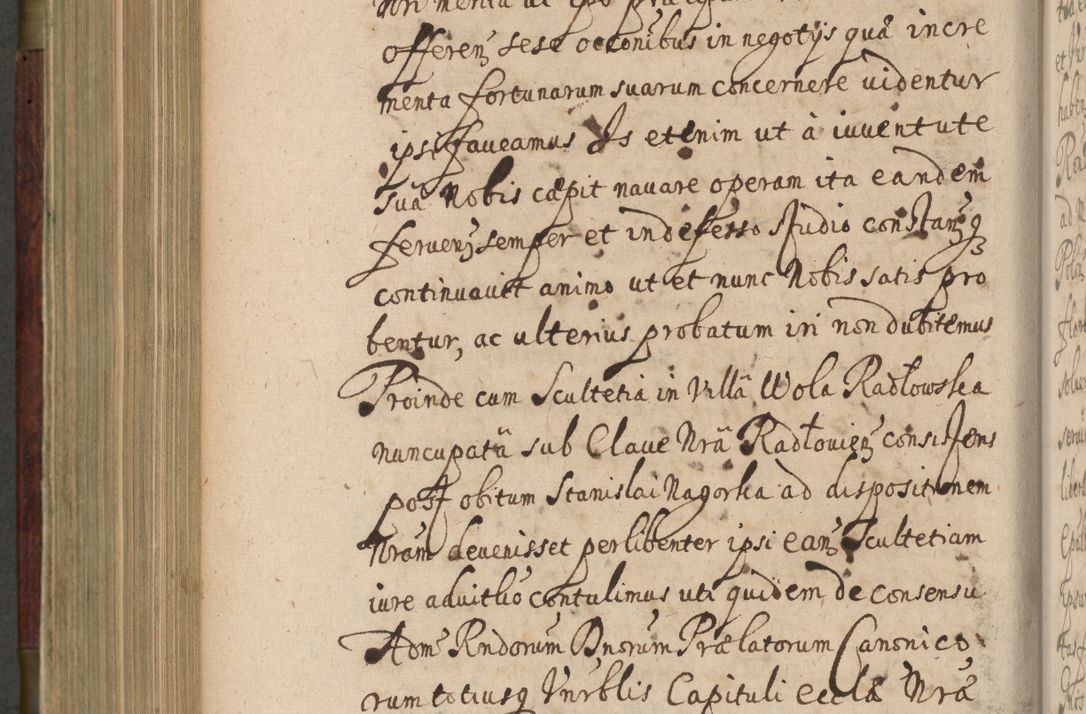 offerenʒ sese occonibus in negotijs quæ incre
menta fortunarum suarum concernere videntur
ipsi faveamus Is etenim ut à iuventute
suâ Nobis cæpit navare operam ita eandem
fervenʒ semper et indefesso studio constanʒqʒ
continuavit animo ut et nunc Nobis satis pro
bentur, ac ulterius probatum iri non dubitemus
Proinde cum Scultetia in Villâ Wola Radłowska
nuncupatâ sub Clave Nrâ Radłovienʒ consistens
post obitum Stanislai Nagorka ad dispositionem
Nram devenisset perlibenter ipsi eanʒ Scultetiam
iure advitlio contulimus uti quidem de consensu
Adm Rndorum Dnorum Prælatorum Canonico
rum totiusq Vnrblis Capituli eccłæ Nræ